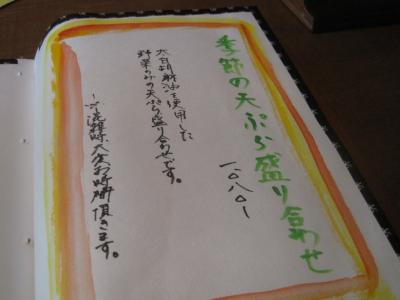 季節の天ぷら盛り合わせ
一〇八〇ー
太白胡麻油を使用した
野菜のみの天ぷら盛り合わせです。
〜ご混雑時、大変お時間頂きます。